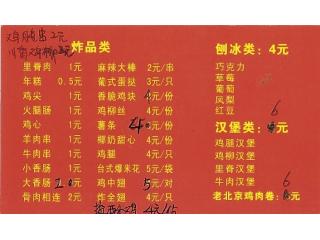 鸡脆骨2元
炸品类
刨冰类：4元
里脊肉 1元
年糕 0.5元
鸡尖 1元
火腿肠 1元
鸡心 1元
羊肉串 1元
牛肉串 1元
小香肠 1元
大香肠
骨肉相连 2元
麻辣大棒 2元/串
葡式蛋挞 3元/只
香脆鸡块 4元/份
鸡柳丝 4元/份
薯条 4元/份
椰奶甜心 4元/份
鸡腿 4元/只
台式爆米花 5元/袋
鸡中翅 5元/对
炸全翅 4元/只
巧克力
草莓
葡萄
凤梨
红豆
汉堡类：6元
鸡腿汉堡
鸡柳汉堡
里脊汉堡
牛肉汉堡
老北京鸡肉卷：6元